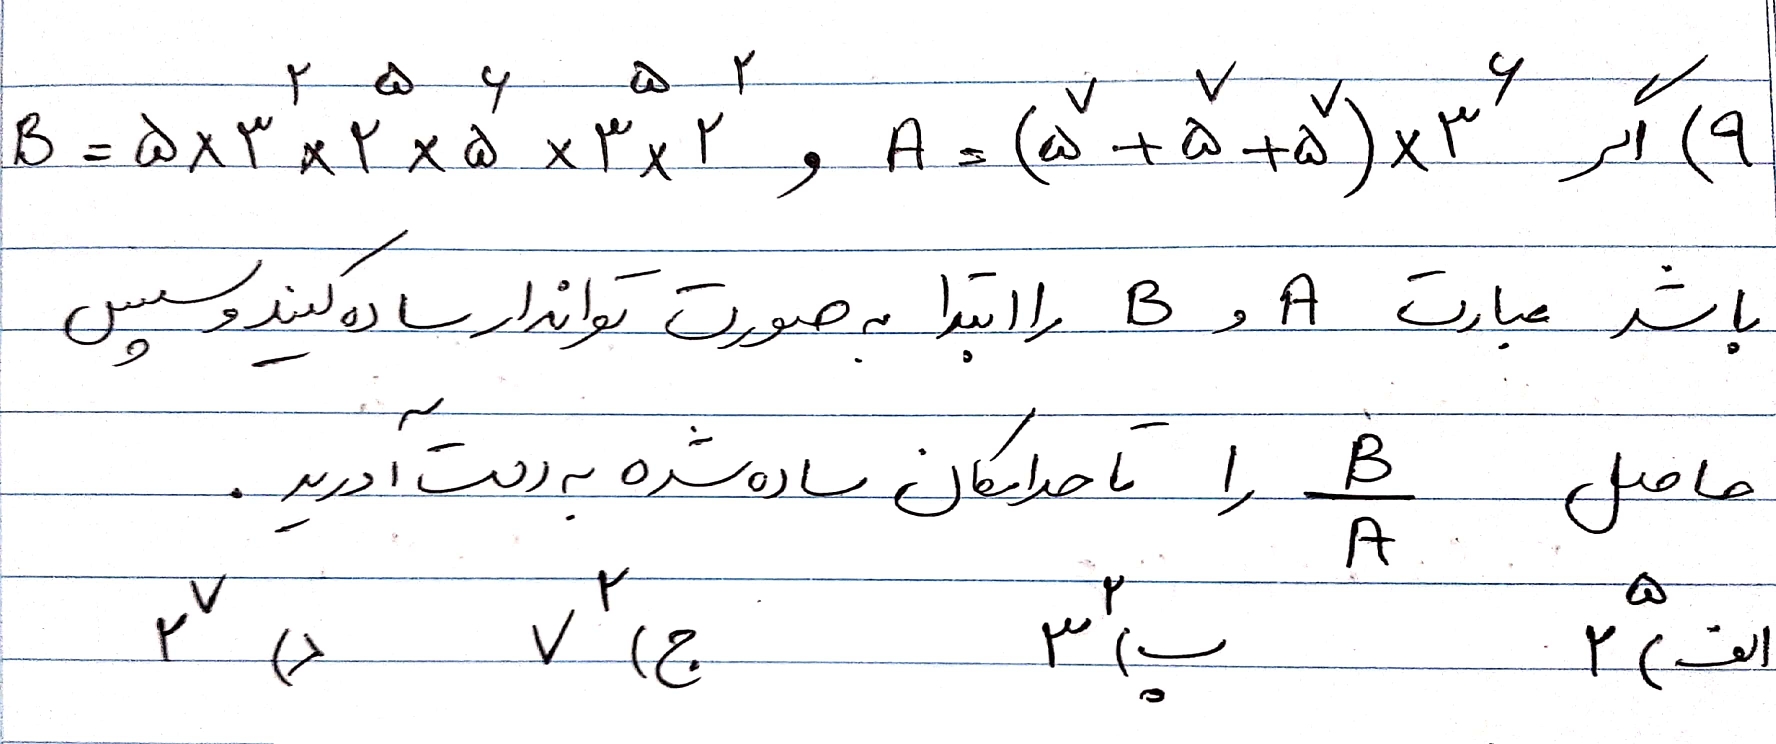 ۹) اگر A = (۵^۷ + ۵^۷ + ۵^۷) × ۳^۶ و B = ۵ × ۳^۲ × ۲^۵ × ۵^۶ × ۳^۵ × ۲^۲
باشد عبارت A و B را ابتدا به صورت تواندار ساده کنید و سپس
حاصل B/A را تا حد امکان ساده شده به دست آورید .
الف) ۲^۵ ب) ۳^۲ ج) ۷^۲ د) ۲^۷